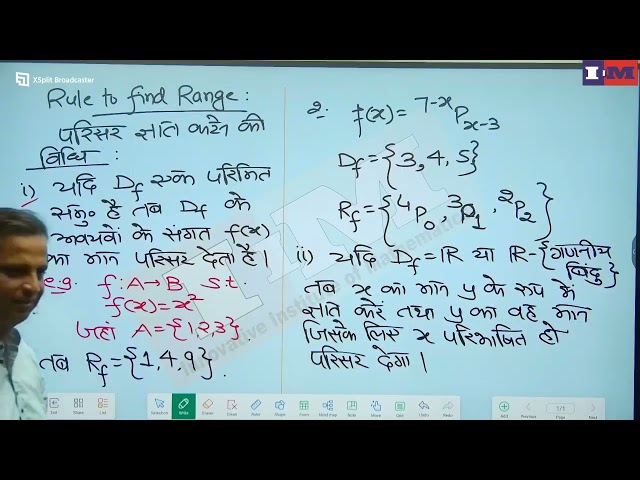 XSplit Broadcaster
I-M
Rule to find Range:
परिसर ज्ञात करने की
विधि :
i) यदि Df एक परिमित
समु० है तब Df के
अवयवों के संगत f(x)
का मान परिसर देता है।
e.g. f: A→B s.t.
f(x)=x²
जहां A={1,2,3}
तब Rf={1,4,9}.
2. f(x)= ⁷⁻ˣPx-3
Df={3,4,5}
Rf={⁴P₀, ³P₁, ²P₂}
ii) यदि Df=IR या IR-{गणनीय
बिंदु}
तब x का मान y के रूप में
ज्ञात करें तथा y का वह मान
जिसके लिए x परिभाषित हो
परिसर देगा।
I-M
Innovative Institute of Mathematics
Exit Share Selection Write Eraser Undo Ruler Shape Form Mind map More Pointer Desktop Add Previous 1/1 Page Next